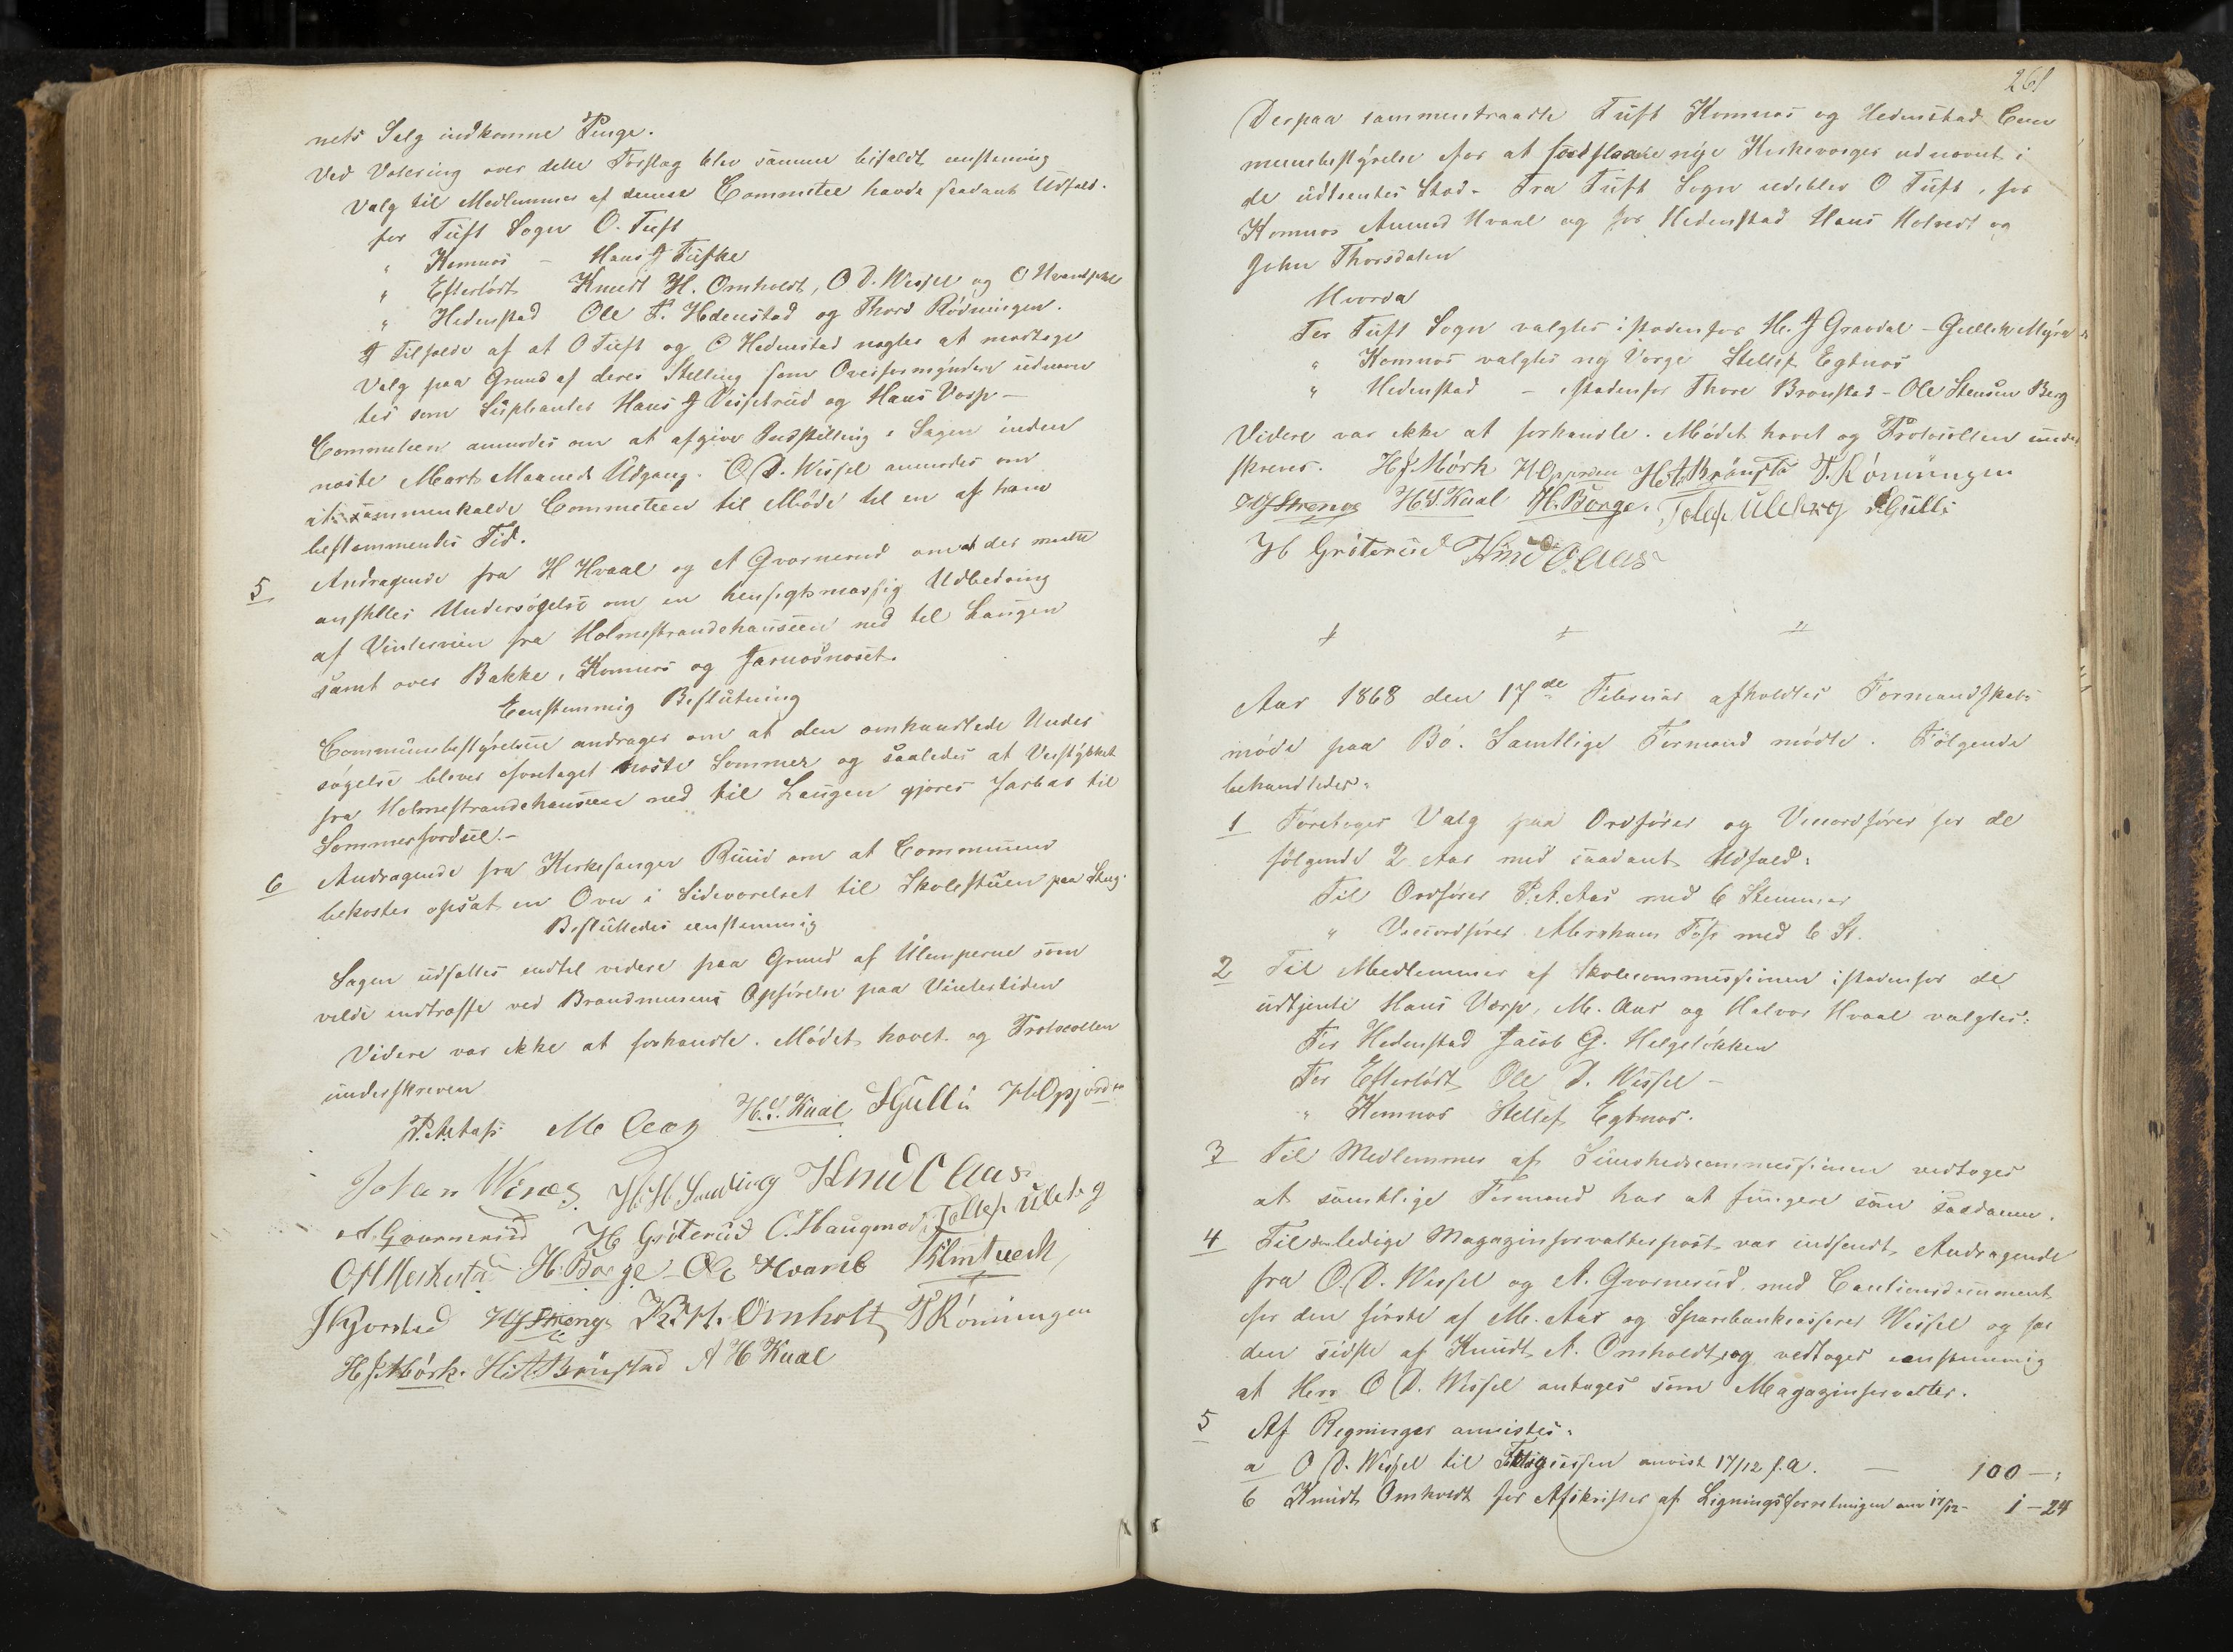 nets Salg indkomne Penge.
Ved Votering over dette Forslag blev samme bifaldt eenstemmig
Valg til Medlemmer af denne Committee havde saadant Udfald.
for Tuft Sogn O. Tuft
" Komnes – Hans J Tufte
" Efterlødt Knudt H. Omholdt, O. D. Wessel og O Hvamb
" Hedenstad Ole P. Hedenstad og Thord Rødningen.
I Tilfælde af at O Tuft og O Hedenstad nægter at modtage
Valg paa Grund af deres Stilling som Overformyndere udnævn
tes som Supleanter Hans J Disserud og Hans Værp –
Committeen anmodes om at afgive Indstilling i Sagen inden
næste Marts Maaneds Udgang. O. D. Wessel anmodes om
at sammenkalde Committeen til Møde til en af ham
bestemmendes Tid.
5 Andragende fra H Hvaal og A Qvarnerud om at der maatte
anstilles Undersøgelse om en hensigtsmæssig Udbedring
af Vinterveien fra Holmestrandchausseen ned til Laugen
samt over Bakke, Komnes og Jarnæsnæset.
Eenstemmig Beslutning
Communebestyrelsen andrager om at den omhandlede Under
søgelse bliver foretaget næste Sommer og saaledes at Veistykket
fra Holmestrandchausseen ned til Laugen gjøres farbar til
Sommerfærdsel. –
6 Andragende fra Kirkesanger Ruud om at Communen
bekoster opsat en Ovn i Sideværelset til Skolestuen paa
Besluttedes eenstemmig
Sagen udsattes indtil videre paa Grund af Ulemperne som
vilde indtræffe ved Brandmurens Opførelse paa Vintertiden
Videre var ikke at forhandle. Mødet hævet og Protocollen
underskreven
P.A. Aas M Aas H.S. Kaal S Gulli H Opjorden
Johan H. H. Knud O Aas
A. Qvarnerud H Grøterud C. Haugmoe Tollef Uleberg
H. Borge Ole Hvamb
H J Streng K. H. Omholt T Rønningen
H J. Mørk. H. A. Brønstad A H Kaal
261
Derpaa sammentraadte Tuft Komnes og Hedenstad Com
munebestyrelse for at foreslaae nye Kirkeværger udnævnt i
de udtrædtes Sted – Fra Tuft Sogn udeblev O Tuft, for
Komnes Amund Hvaal og for Hedenstad Hans Holtvedt og
John Thorsdalen
Hvorda
For Tuft Sogn valgtes istedenfor H. J Gravdal – Gullik Myra
" Komnes valgtes ny Værge Stellef Egtnes
" Hedenstad – istedenfor Thore Brønstad – Ole Stensen Berg
Videre var ikke at forhandle. Mødet hævet og Protocollen under
skreves. H J Mørk H Opjorden H A Brønstad T. Rønningen
H J Streng H S. Kaal H. Borge. Tollef Uleberg S Gulli
H Grøterud Knud O Aas
Aar 1868 den 17de Februar afholdtes Formandskabs
møde paa Bø. Samtlige Formænd mødte. Følgende
behandledes:
1 Foretoges Valg paa Ordfører og Viceordfører for de
følgende 2 Aar med saadant Udfald:
Til Ordfører P. A. Aas med 6 Stemmer
" Viceordfører Abraham Foss med 6 St.
2 Til Medlemmer af Skolecommissionen istedenfor de
udtjente Hans Værp, M. Aas og Halvor Hvaal valgtes:
For Hedenstad Jacob G. Helgeløkken
For Efterlødt Ole D. Wessel –
" Komnes Stellef Egtnes.
3 Til Medlemmer af Sundhedscommissionen vedtoges
at samtlige Formænd har at fungere som saadanne.
4 Til den ledige Magazinforvalterpost var indsendt Andragende
fra O. D. Wessel og A. Qvarnerud med Cautionsdocument
for den første af M. Aas og Sparebankcasserer Wessel og for
den sidste af Knudt A. Omholdt, og vedtoges eenstemmig
at Herr O D. Wessel antages som Magazinforvalter.
5 Af Regninger anvistes:
a O D. Wessel til Fattigcassen anvist 17/12 f. A. – 100 – "
b Knudt Omholdt for Afskrifter af Ligningsforretningen anv 17/12 – 1 – 24